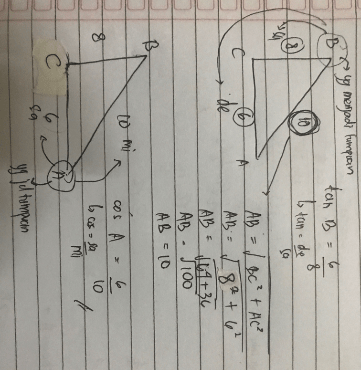 B → yg menjadi tumpuan
sa
8
C
10
de
6
A
tan B = 6
8
↳ tan = de
sa
AB = √BC² + AC²
AB = √8² + 6²
AB = √64 + 36
AB = √100
AB = 10
B
8
C
10 mi
6
sa
A
yg jd tumpuan
cos A = 6
10
↳ cos = sa
mi